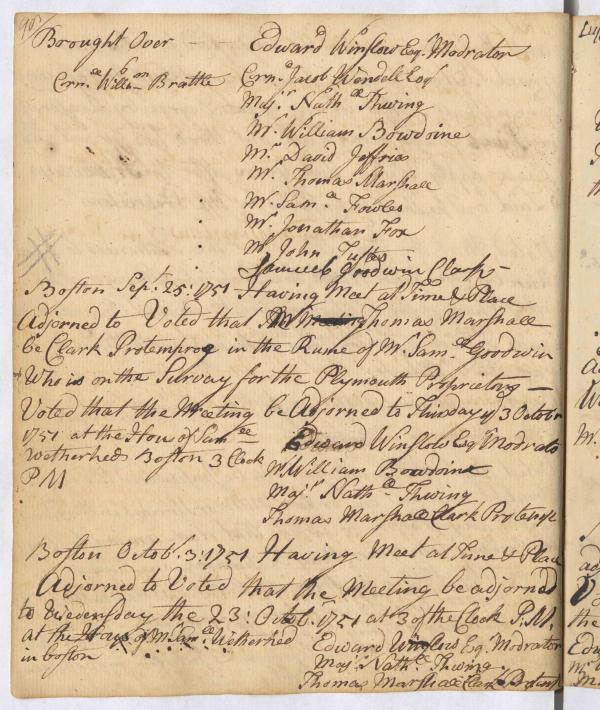 90
Brought Over Edward Winslow Esqr. Modrator
Crn.ll Wm Brattle Crn.ll Jacob Wendell Esqr
Majr. Nathll Thwing
Mr. William Bowdoine
Mr. David Jeffries
Mr. Thomas Marshall
Mr. Samll Fowles
Mr. Jonathan Fox
Mr. John Tuftes
Samuell Goodwin Clark
Boston Sept. 25: 1751 Having Meet at Time & Place
Adjorned to Voted that Mr Thomas Marshall
be Clark Protemprog in the Rume of Mr. Samll Goodwin
Who is on the Survay for the Plymouth Proprietors
Voted that the Meeting be Adjorned to Thursday ye 3 Octobr
1751 at the Hous of Samll
Wetherheds Boston 3 Clock
P M
Edward Winslow Esqr Modrato
Mr William Bowdoine
Majr. Nathll Thwing
Thomas Marshall Clark Protemp
Boston Octobr. 3: 1751 Having Meet at Time & Place
Adjorned to Voted that the Meeting be adjorned
to Wedensday the 23: Octobr. 1751 at 3 of the Clock P.M.
at the Hous of Mr Samll Wetherhed
in boston
Edward Winslow Esqr. Modrator
Majr. Nathll Thwing
Thomas Marshall Clark Protemp